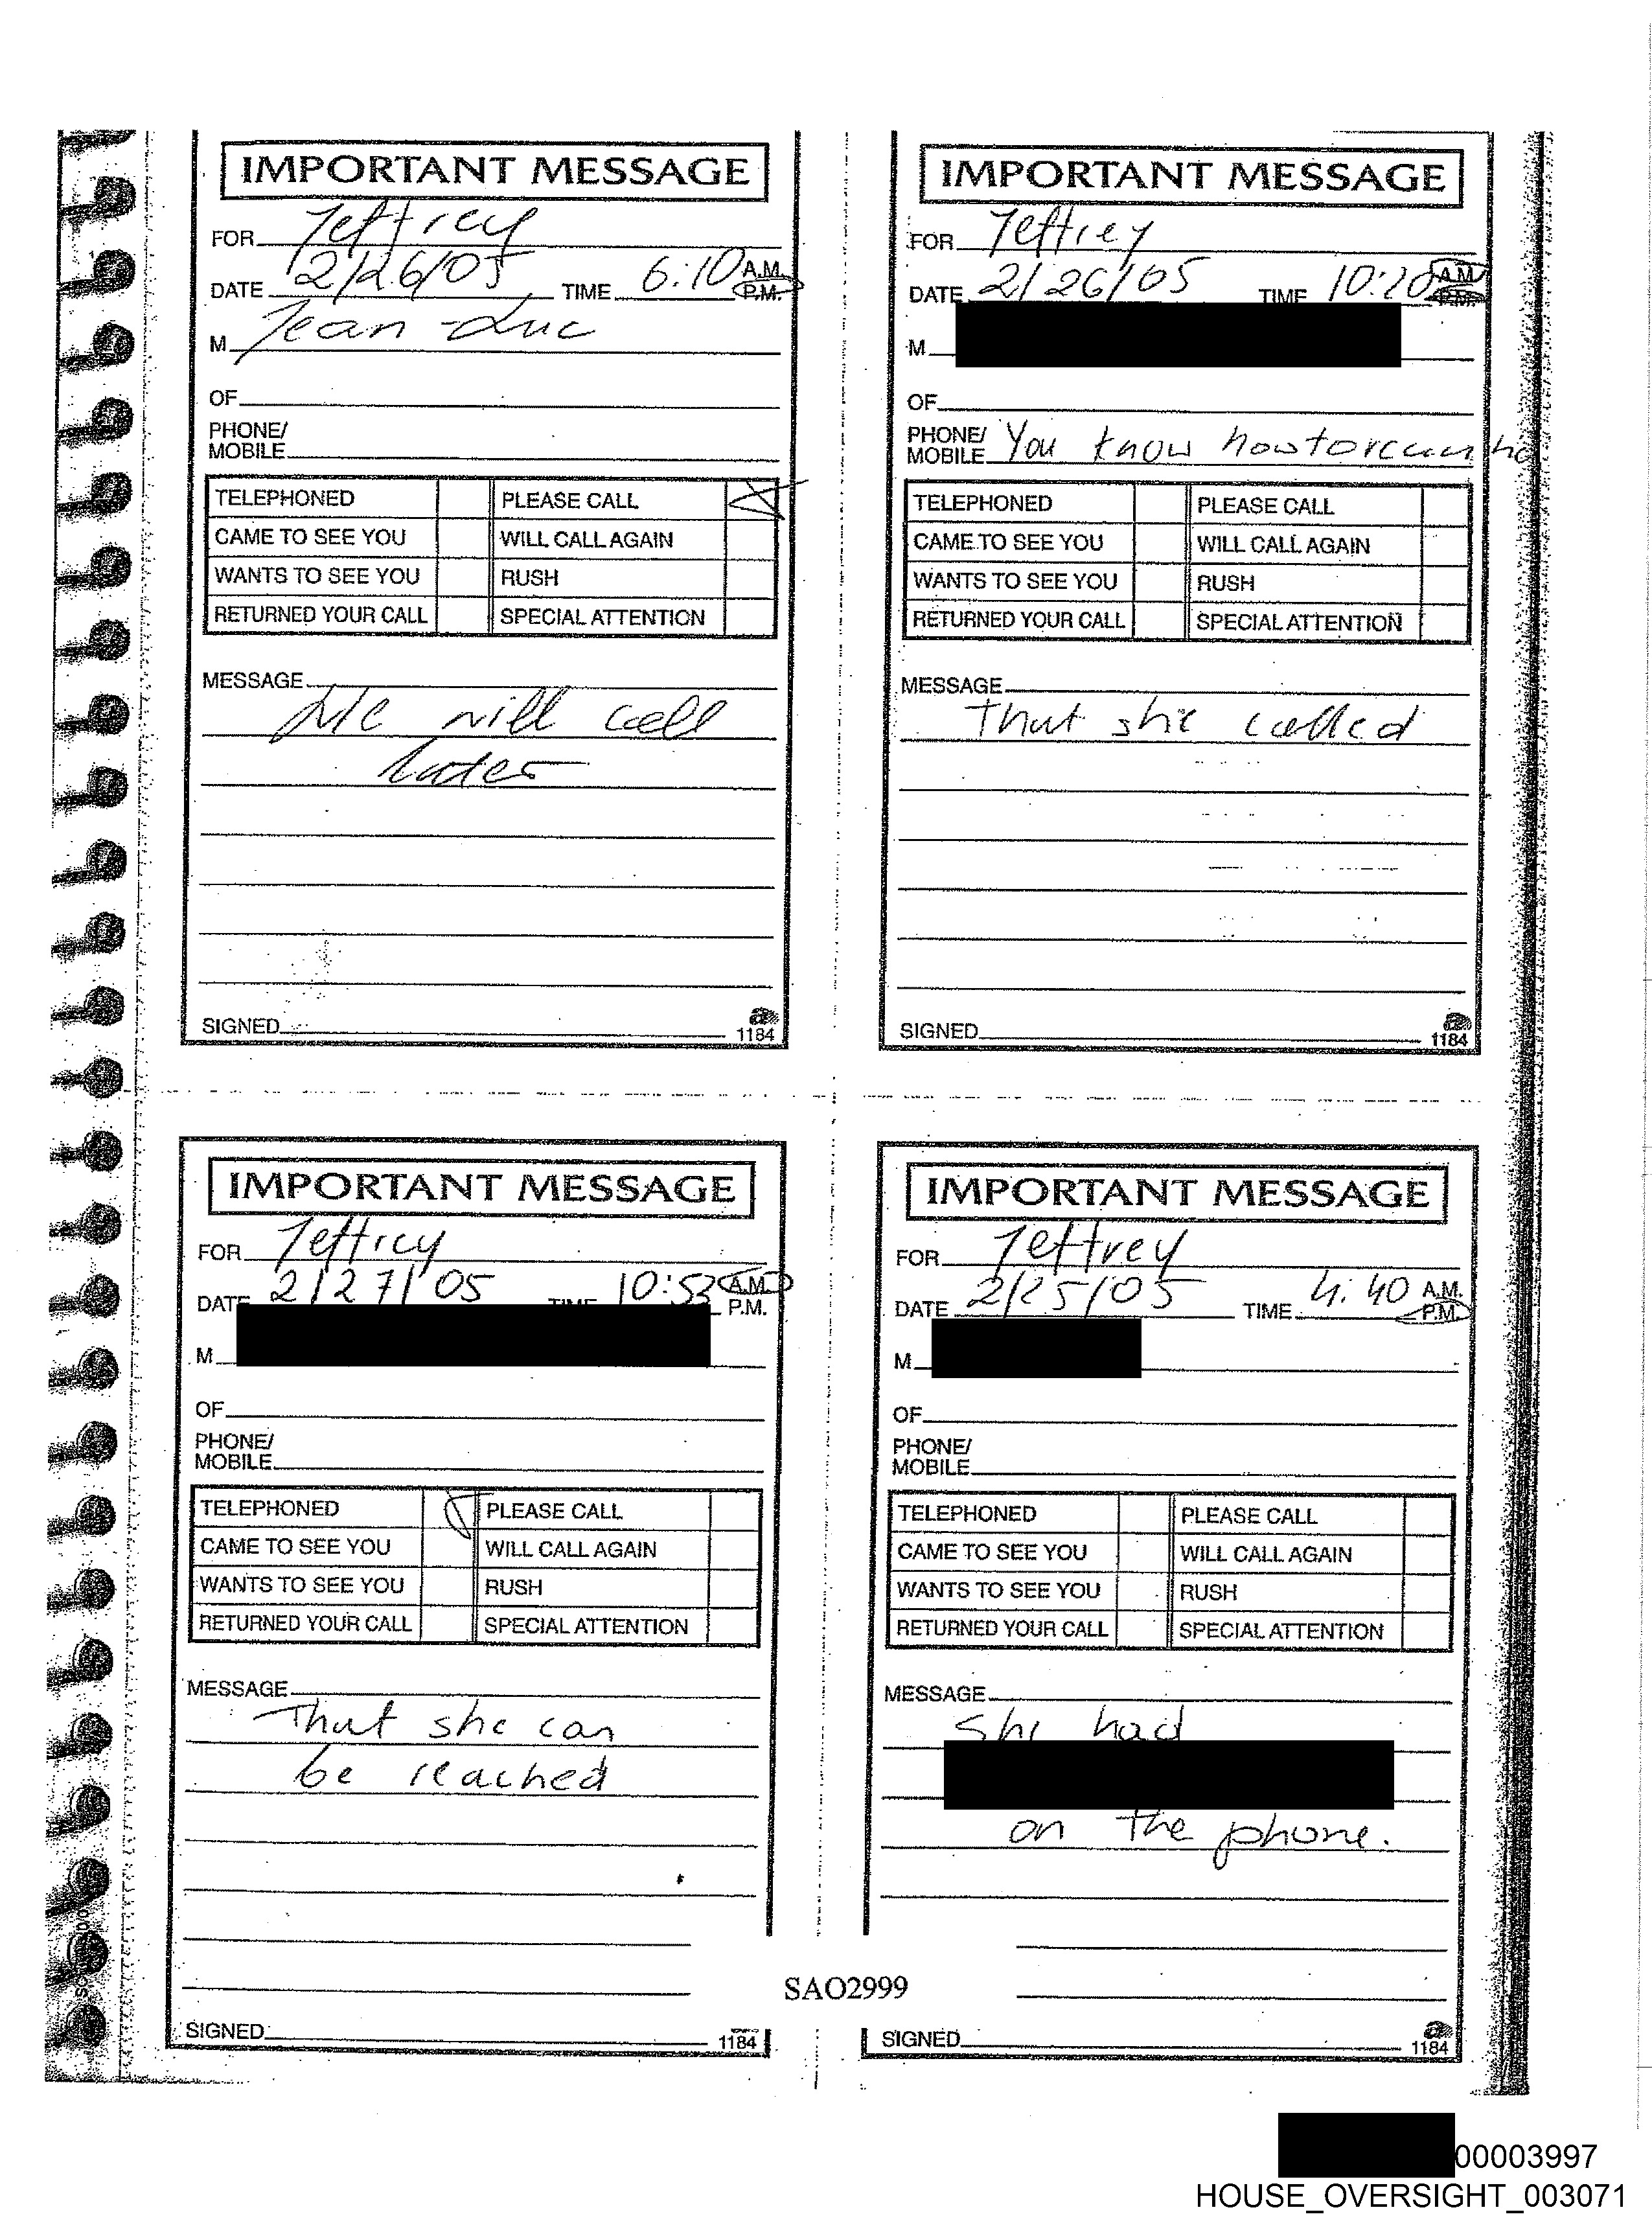 IMPORTANT MESSAGE
FOR Jeffrey
DATE 2/26/05 TIME 6:10 A.M.
P.M.
M Jean-Luc
OF
PHONE/
MOBILE
TELEPHONED PLEASE CALL
CAME TO SEE YOU WILL CALL AGAIN
WANTS TO SEE YOU RUSH
RETURNED YOUR CALL SPECIAL ATTENTION
MESSAGE
will call
later
SIGNED
1184
IMPORTANT MESSAGE
FOR Jeffrey
DATE 2/26/05 TIME 10:20 A.M.
P.M.
M
OF
PHONE/
MOBILE You know how to
TELEPHONED PLEASE CALL
CAME TO SEE YOU WILL CALL AGAIN
WANTS TO SEE YOU RUSH
RETURNED YOUR CALL SPECIAL ATTENTION
MESSAGE
That she called
SIGNED
1184
IMPORTANT MESSAGE
FOR Jeffrey
DATE 2/27/05 TIME 10:53 A.M.
P.M.
M
OF
PHONE/
MOBILE
TELEPHONED PLEASE CALL
CAME TO SEE YOU WILL CALL AGAIN
WANTS TO SEE YOU RUSH
RETURNED YOUR CALL SPECIAL ATTENTION
MESSAGE
That she can
be reached
SIGNED
1184
IMPORTANT MESSAGE
FOR Jeffrey
DATE 2/25/05 TIME 4:40 A.M.
P.M.
M
OF
PHONE/
MOBILE
TELEPHONED PLEASE CALL
CAME TO SEE YOU WILL CALL AGAIN
WANTS TO SEE YOU RUSH
RETURNED YOUR CALL SPECIAL ATTENTION
MESSAGE
She had
on the phone.
SIGNED
1184
SAO2999
00003997
HOUSE_OVERSIGHT_003071